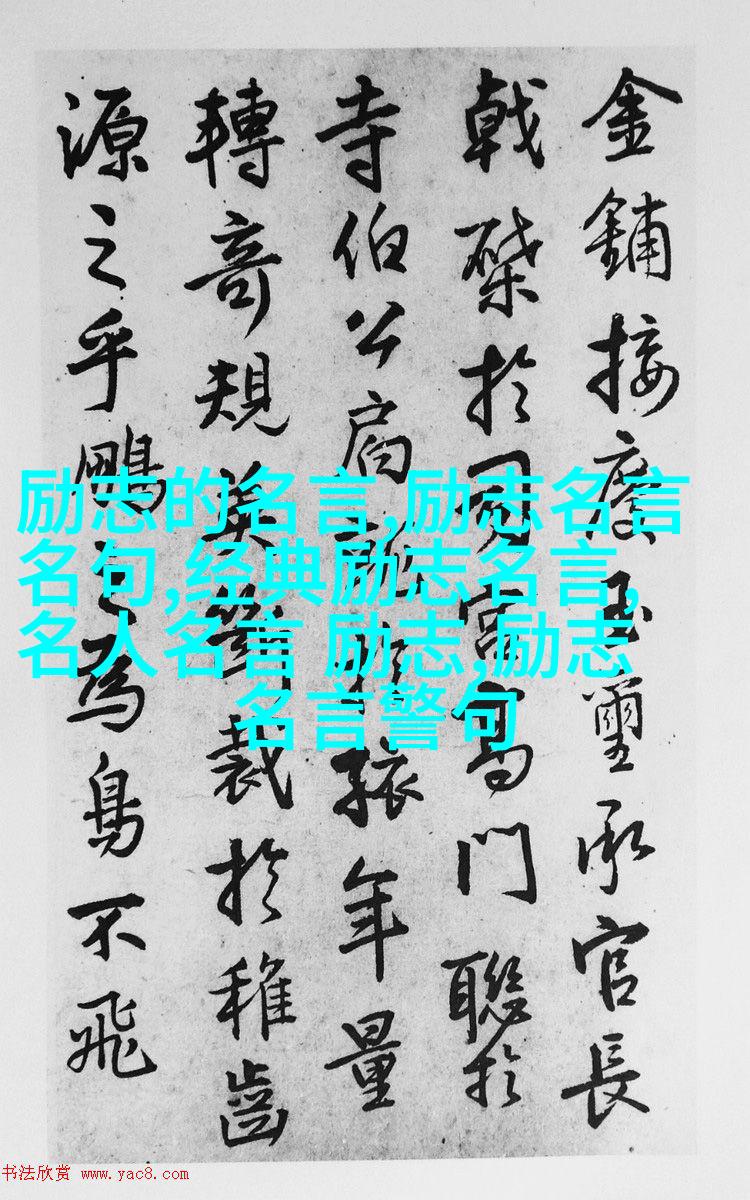 金鋪接慶玉璽承官長
戟棨於宮高門聯於
寺伯公扃孩年量
轉奇規美對裁於稚齒
源之乎鵬之為鳥不飛
励志的名言,励志名言
名句,经典励志名言,
名人名言 励志,励志
名言警句
书法欣赏 www.yac8.com